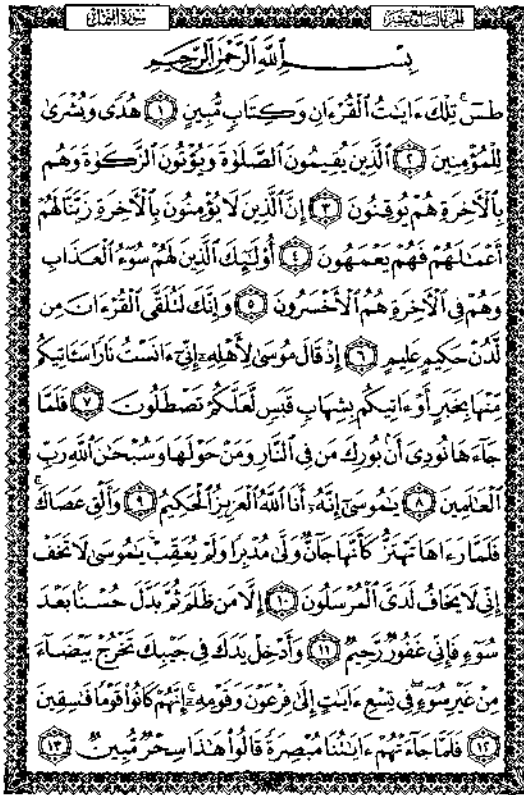 الجزء التاسع عشر
سورة النمل
بِسْمِ اللَّهِ الرَّحْمَٰنِ الرَّحِيمِ
طسٓ ۚ تِلْكَ ءَايَٰتُ الْقُرْءَانِ وَكِتَابٍ مُّبِينٍ ١ هُدًى وَبُشْرَىٰ
لِلْمُؤْمِنِينَ ٢ الَّذِينَ يُقِيمُونَ الصَّلَوٰةَ وَيُؤْتُونَ الزَّكَوٰةَ وَهُم
بِالْأَخِرَةِ هُمْ يُوقِنُونَ ٣ إِنَّ الَّذِينَ لَا يُؤْمِنُونَ بِالْأَخِرَةِ زَيَّنَّا لَهُمْ
أَعْمَٰلَهُمْ فَهُمْ يَعْمَهُونَ ٤ أُوْلَٰٓئِكَ الَّذِينَ لَهُمْ سُوٓءُ الْعَذَابِ
وَهُمْ فِي الْأَخِرَةِ هُمُ الْأَخْسَرُونَ ٥ وَإِنَّكَ لَتُلَقَّى الْقُرْءَانَ مِن
لَّدُنْ حَكِيمٍ عَلِيمٍ ٦ إِذْ قَالَ مُوسَىٰ لِأَهْلِهِۦٓ إِنِّيٓ ءَانَسْتُ نَارًا سَـَٔاتِيكُم
مِّنْهَا بِخَبَرٍ أَوْ ءَاتِيكُم بِشِهَابٍ قَبَسٍ لَّعَلَّكُمْ تَصْطَلُونَ ٧ فَلَمَّا
جَآءَهَا نُودِيَ أَنۢ بُورِكَ مَن فِي النَّارِ وَمَنْ حَوْلَهَا وَسُبْحَٰنَ اللَّهِ رَبِّ
الْعَٰلَمِينَ ٨ يَٰمُوسَىٰٓ إِنَّهُۥٓ أَنَا اللَّهُ الْعَزِيزُ الْحَكِيمُ ٩ وَأَلْقِ عَصَاكَ ۚ
فَلَمَّا رَءَاهَا تَهْتَزُّ كَأَنَّهَا جَآنٌّ وَلَّىٰ مُدْبِرًا وَلَمْ يُعَقِّبْ ۚ يَٰمُوسَىٰ لَا تَخَفْ
إِنِّي لَا يَخَافُ لَدَيَّ الْمُرْسَلُونَ ١٠ إِلَّا مَن ظَلَمَ ثُمَّ بَدَّلَ حُسْنًۢا بَعْدَ
سُوٓءٍ فَإِنِّي غَفُورٌ رَّحِيمٌ ١١ وَأَدْخِلْ يَدَكَ فِي جَيْبِكَ تَخْرُجْ بَيْضَآءَ
مِنْ غَيْرِ سُوٓءٍ ۖ فِي تِسْعِ ءَايَٰتٍ إِلَىٰ فِرْعَوْنَ وَقَوْمِهِۦٓ ۚ إِنَّهُمْ كَانُوا۟ قَوْمًا فَٰسِقِينَ
١٢ فَلَمَّا جَآءَتْهُمْ ءَايَٰتُنَا مُبْصِرَةً قَالُوا۟ هَٰذَا سِحْرٌ مُّبِينٌ ١٣